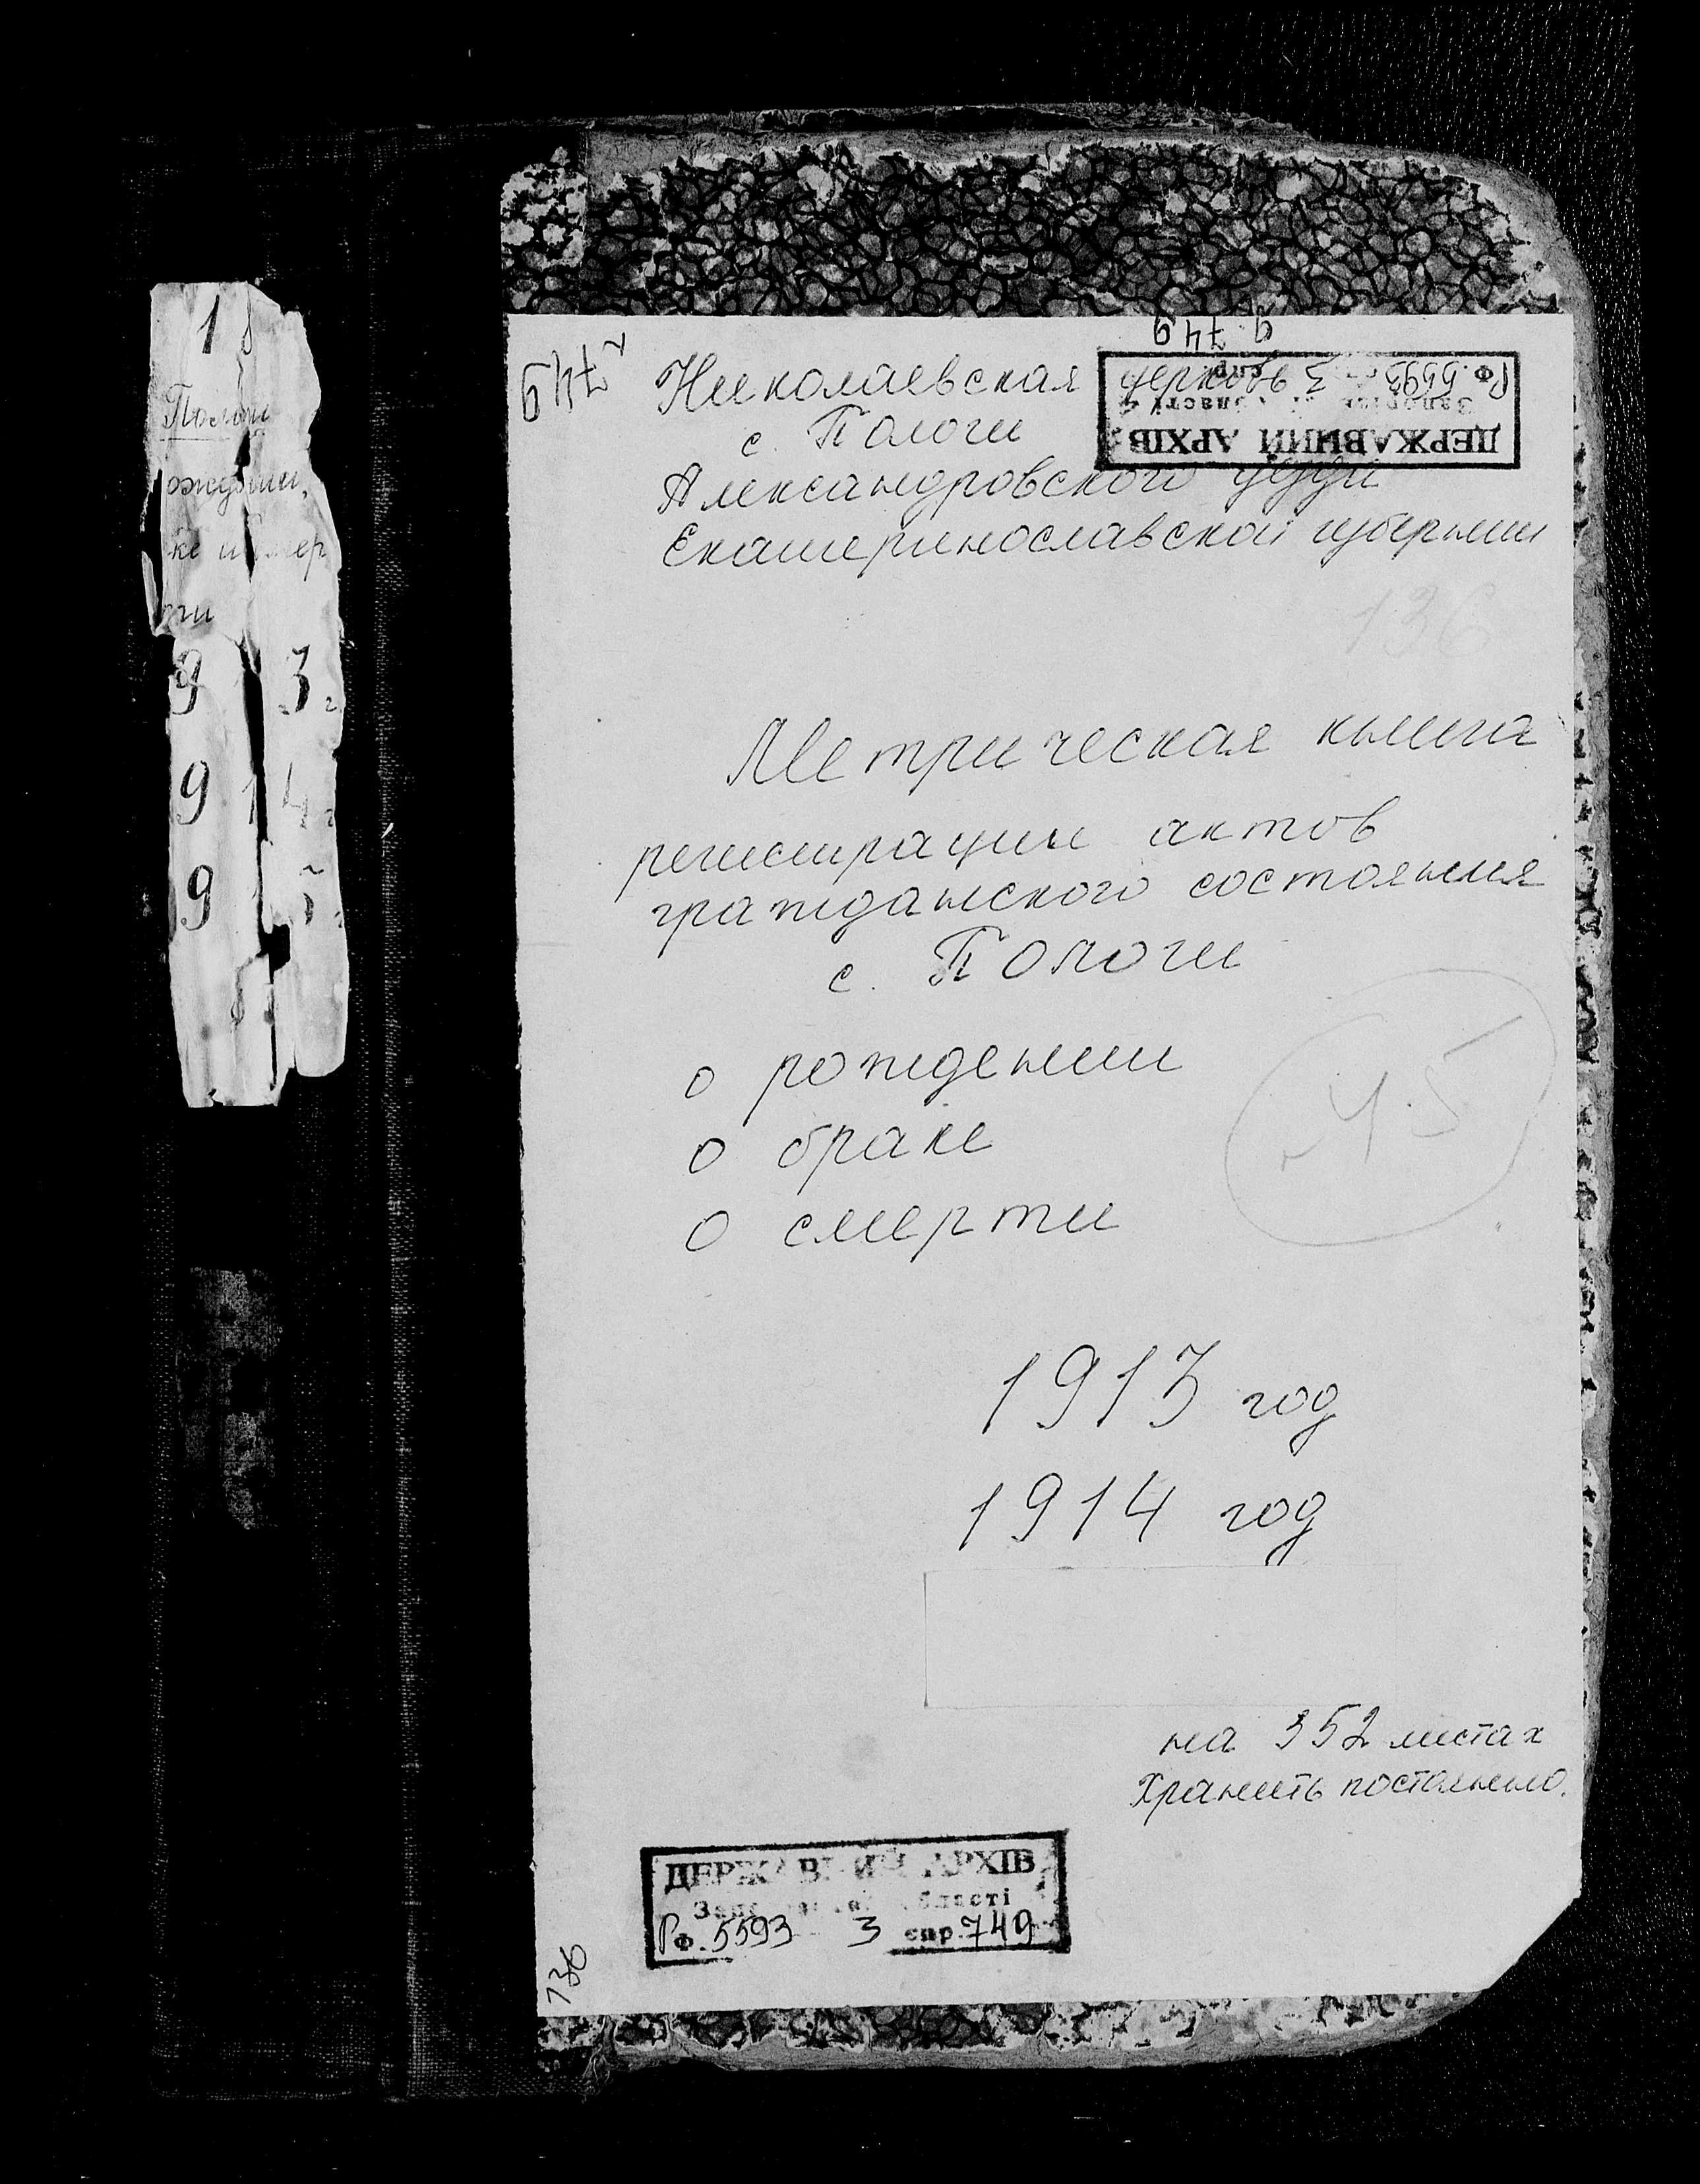 749
Николаевская церковь
с. Пологи
Александровского уезда
Екатеринославской губернии
9 749
ДЕРЖАВНИЙ АРХІВ
Запорізької області
Рф. 5593 3 спр.
136
Метрическая книга
регистрации актов
гражданского состояния
с. Пологи
о рождении
о браке
о смерти
45
1913 год
1914 год
на 352 листах
Хранить постоянно.
ДЕРЖАВНИЙ АРХІВ
Запорізької області
Рф. 5593 3 спр. 749
136
1
Пологи
ождении,
ке и смер
оги
9 3 г.
9 1 4 г.
9 1 5 г.